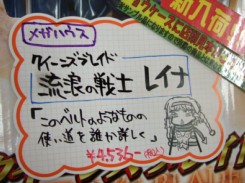 新入荷
メガハウス
クイーンズブレイド
流浪の戦士 レイナ
「このベルトのようなものの
使い道を誰か詳しく」
¥4,536-(税込)